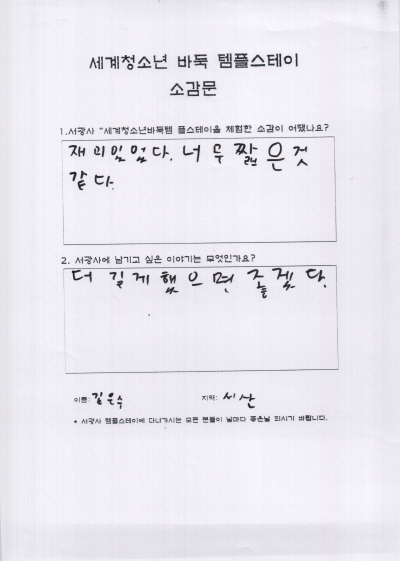 세계청소년 바둑 템플스테이
소감문
1.서광사 "세계청소년바둑템 플스테이을 체험한 소감이 어땠나요?
재미있었다. 너무 짧은것
같다.
2. 서광사에 남기고 싶은 이야기는 무엇인가요?
더 길게했으면 좋겠다.
이름: 김은수 지역: 서산
* 서광사 템플스테이에 다녀가시는 모든 분들이 날마다 좋은날 되시기 바랍니다.